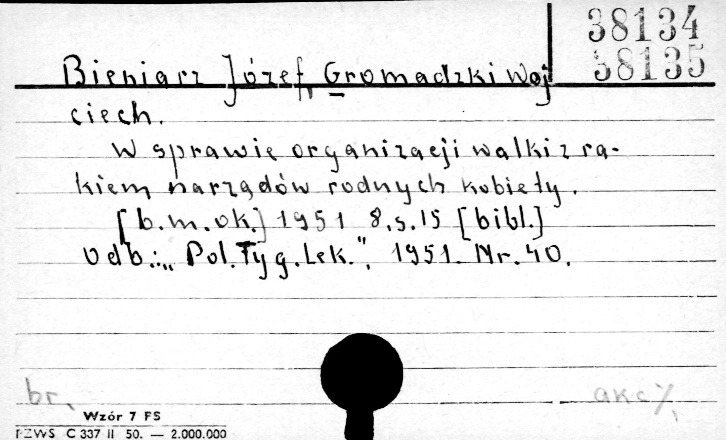 38134
38135
Bieniarz Józef, Gromadzki Woj
ciech.
W sprawie organizacji walki z ra-
kiem narządów rodnych kobiety.
[b.m.ok.] 1951 8, s. 15 [bibl.]
Odb.: „Pol. Tyg. Lek.", 1951. Nr. 40.
br.
akc/.
Wzór 7 FS
PZWS C 337 II 50. — 2.000.000